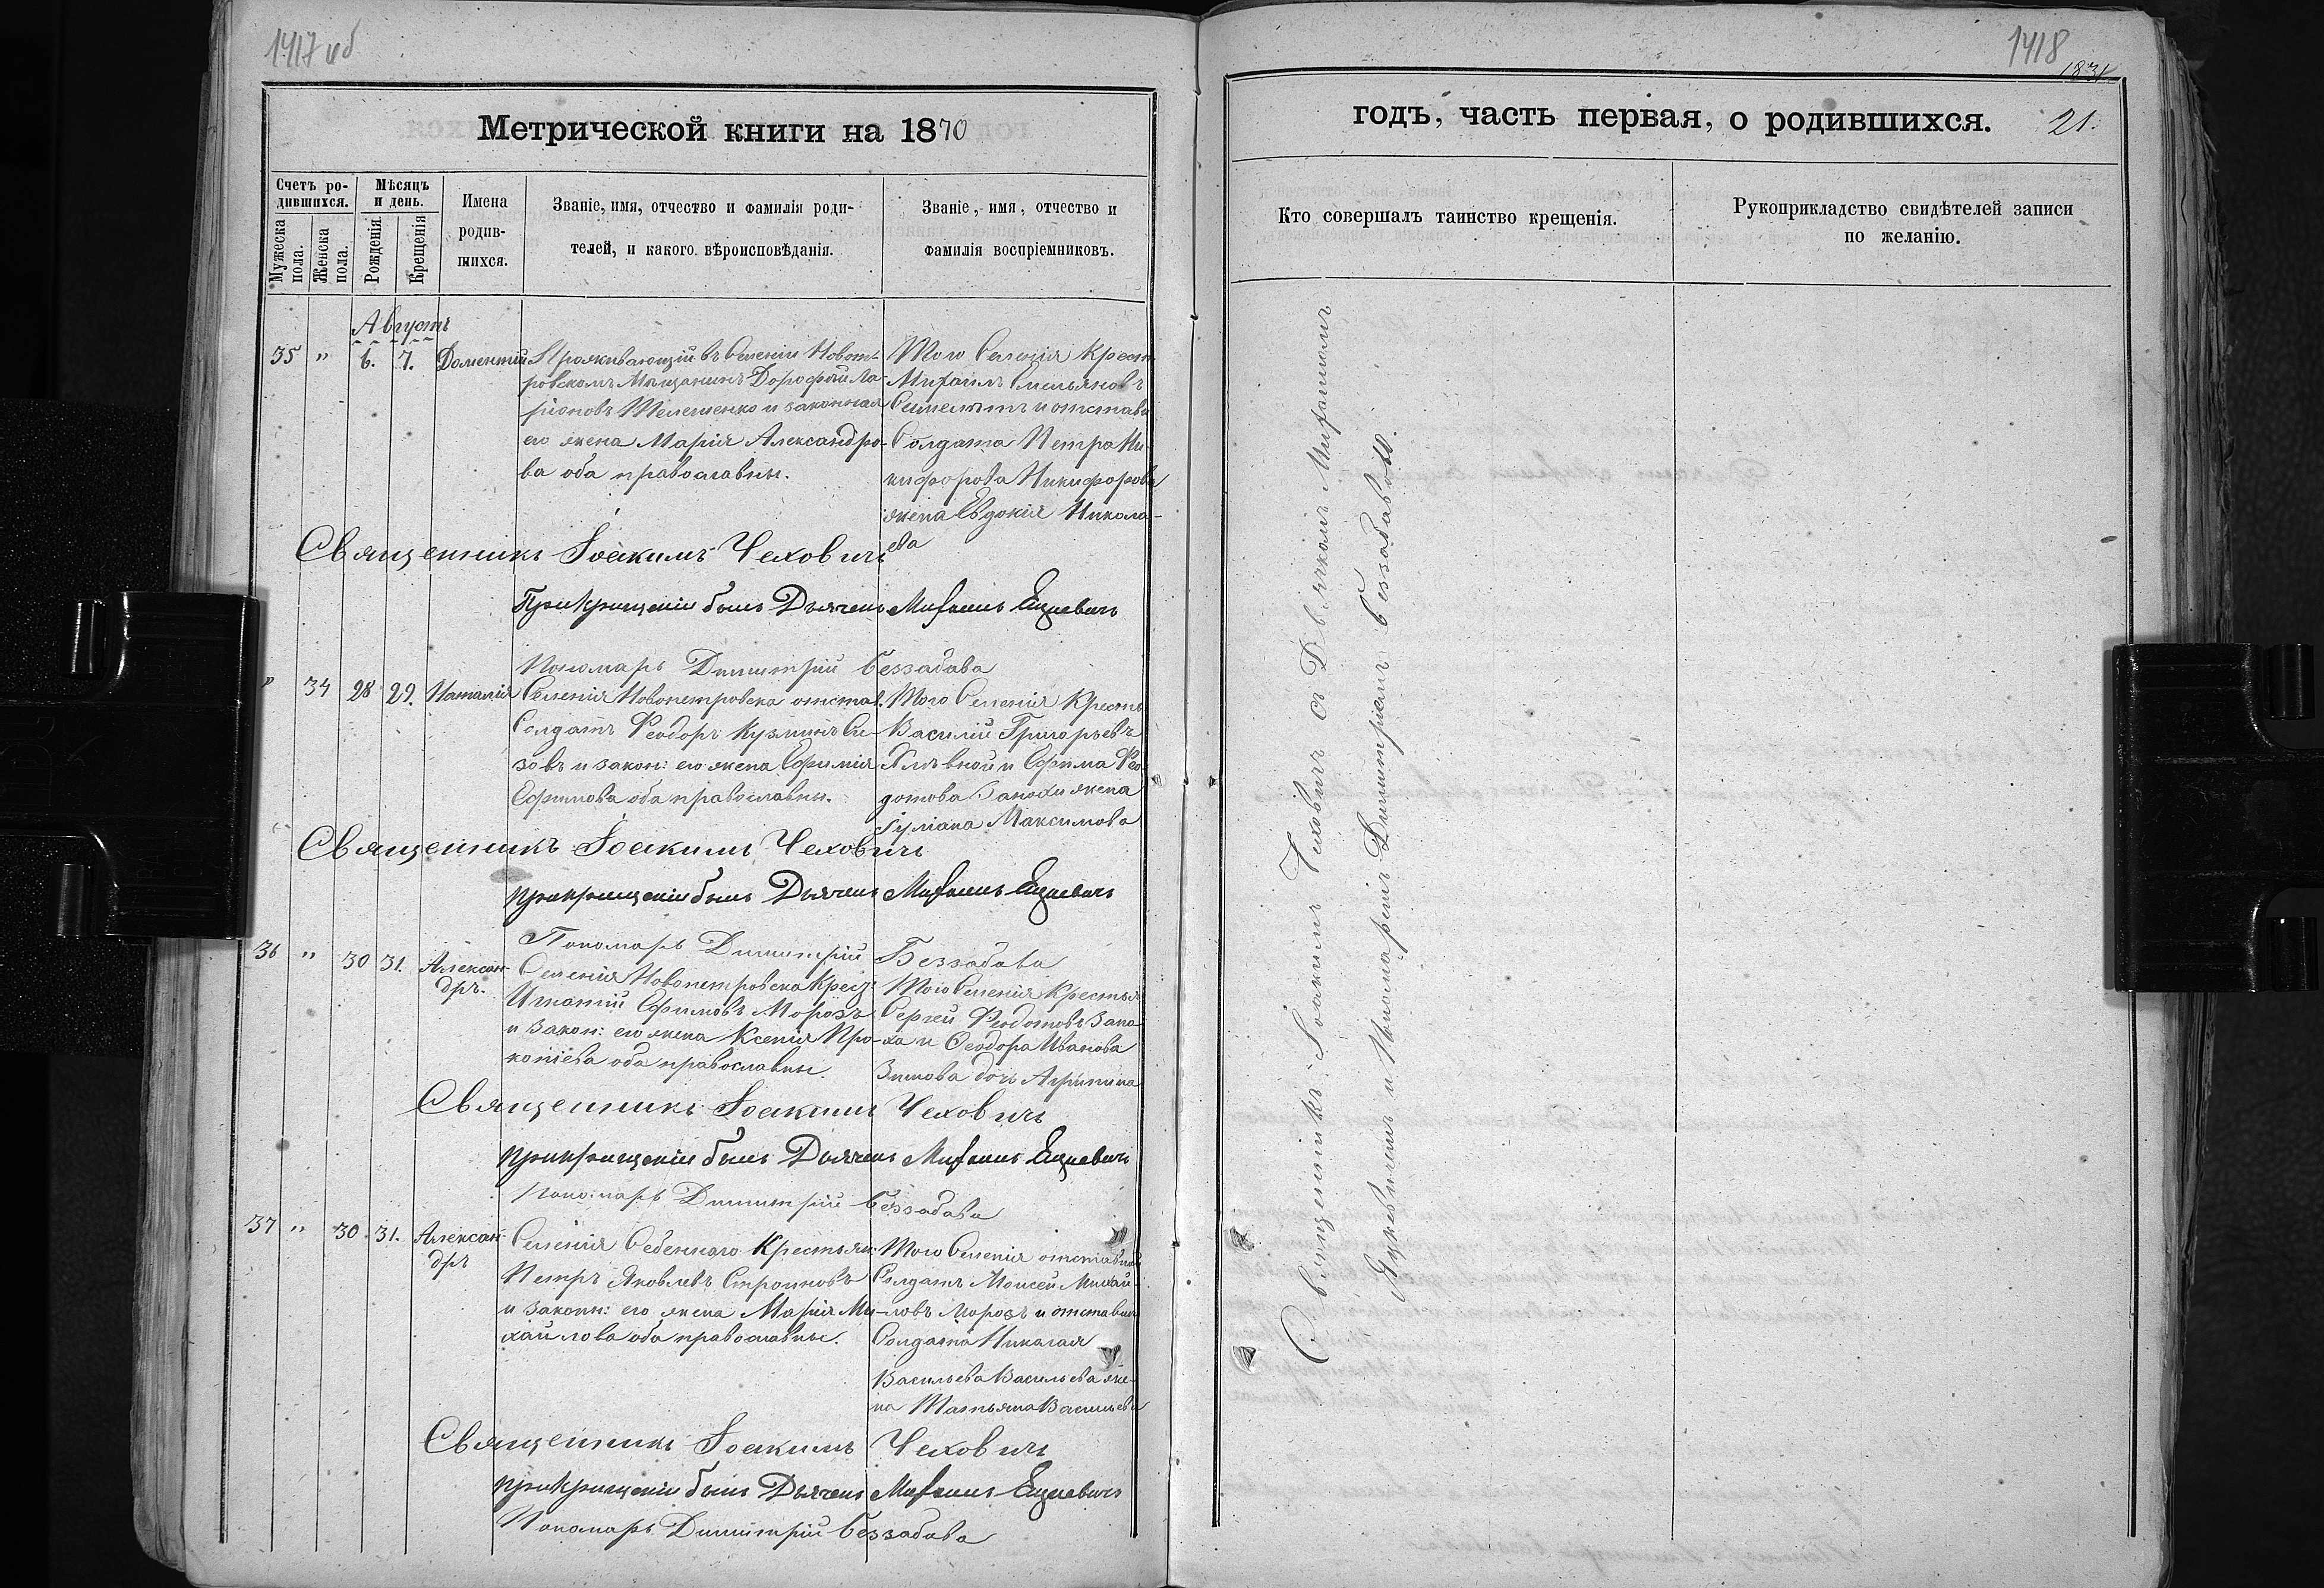 1417 об
Метрической книги на 1870
Счетъ ро-
дившихся.
Мужеска
пола.
Женска
пола.
Мѣсяцъ
и день.
Рожденія.
Крещенія
Имена
родив-
шихся.
Званіе, имя, отчество и фамилія роди-
телей, и какого вѣроисповѣданія.
Званіе, имя, отчество и
фамилія воспріемниковъ.
Августъ
35 " 6. 7. Доментій
Проживающій въ Селеніи Новопет-
ровскомъ Мѣщанинъ Дорофѣй Ла-
ріоновъ Телешенко и законная
его жена Марія Александро-
ва оба православны.
Того Селенія Крест
Михаилъ Емельяновъ
и отстав
Солдата Петра Ни-
кифорова Никифорова
жена Евдокія Никола-
ева
Священникъ Іоакимъ Чеховичъ
При Крещеніи былъ Дьячекъ Михаилъ
Пономарь Димитрій Беззабава
" 34 28 29. Наталія
Селенія Новопетровска отстав.
Солдатъ Феодоръ Кузминъ Си-
зовъ и закон: его жена Ефимія
Ефимова оба православны.
Того Селенія Крестья
Василій Григорьевъ
и Ефима Фео-
дотова жена
Іуліана Максимова
Священникъ Іоакимъ Чеховичъ
При крещеніи былъ Дьячекъ Михаилъ
Пономарь Димитрій Беззабава
36 " 30 31. Алексан-
дръ.
Селенія Новопетровска Крест:
Игнатій Ефимовъ Морозъ
и закон: его жена Ксенія Про-
копіева оба православны.
Того Селенія Крестья
Сергей Феодотовъ Запо-
ха и Феодора Иванова
Зимова дочь Агрипина
Священникъ Іоакимъ Чеховичъ
При крещеніи былъ Дьячекъ Михаилъ
Пономарь Димитрій Беззабава
37 " 30. 31. Алексан-
дръ
Селенія Крестьян:
Петръ Яковлевъ Строиновъ
и законн: его жена Марія Ми-
хайлова оба православны.
Того Селенія отставной
Солдатъ Моисей Михай-
ловъ Морозъ и отставнаго
Солдата Николая
Васильева Васильева же-
на Татьяна Васильева
Священникъ Іоакимъ Чеховичъ
При Крещеніи былъ Дьячекъ Михаилъ
Пономарь Димитрій Беззабава
1418
1831
годъ, часть первая, о родившихся. 21.
Кто совершалъ таинство крещенія.
Рукоприкладство свидѣтелей записи
по желанію.
Священникъ Іоакимъ Чеховичъ съ Дьячкомъ Михаиломъ
и Пономаремъ Димитріемъ Беззабавою.